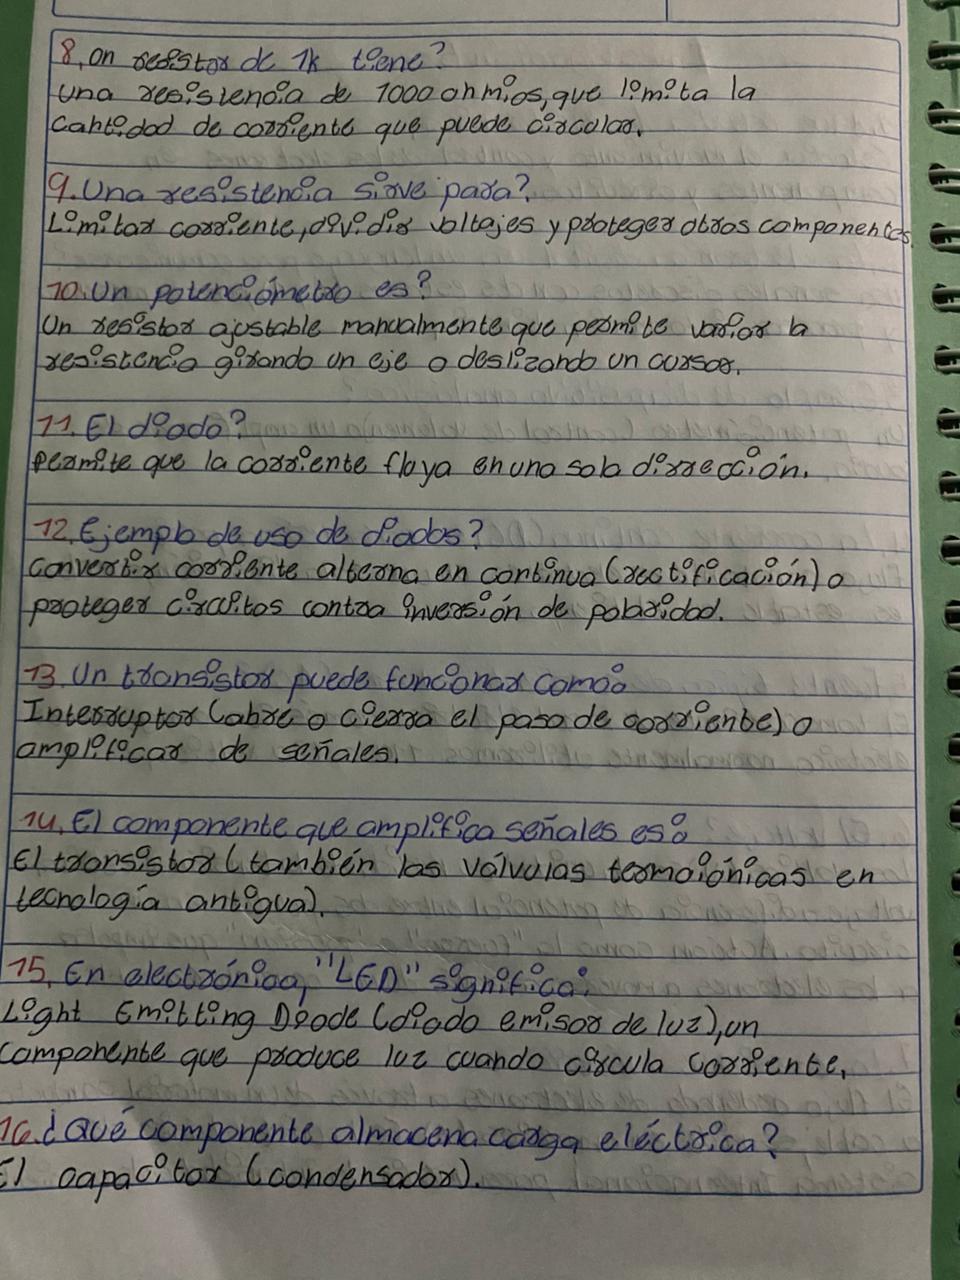 8, un resistor de 1k tiene?
una resistencia de 1000 ohmios, que limita la
cantidad de corriente que puede circular.
9. Una resistencia sirve para?
Limitar corriente, dividir voltajes y proteger otros componentes.
10. Un potenciómetro es?
Un resistor ajustable manualmente que permite variar la
resistencia girando un eje o deslizando un cursor.
11. El diodo?
Permite que la corriente fluya en una sola dirrección.
12. Ejemplo de uso de diodos?
Convertir corriente alterna en continua (rectificación) o
proteger circuitos contra inversión de polaridad.
13. Un transistor puede funcionar como:
Interruptor (abre o cierra el paso de corriente) o
amplificar de señales.
14. El componente que amplifica señales es:
El transistor (también las válvulas termoiónicas en
tecnología antigua).
15, En electrónica, "LED" significa:
Light Emitting Diode (diodo emisor de luz), un
componente que produce luz cuando circula corriente,
16. ¿Qué componente almacena carga eléctrica?
El capacitor (condensador).